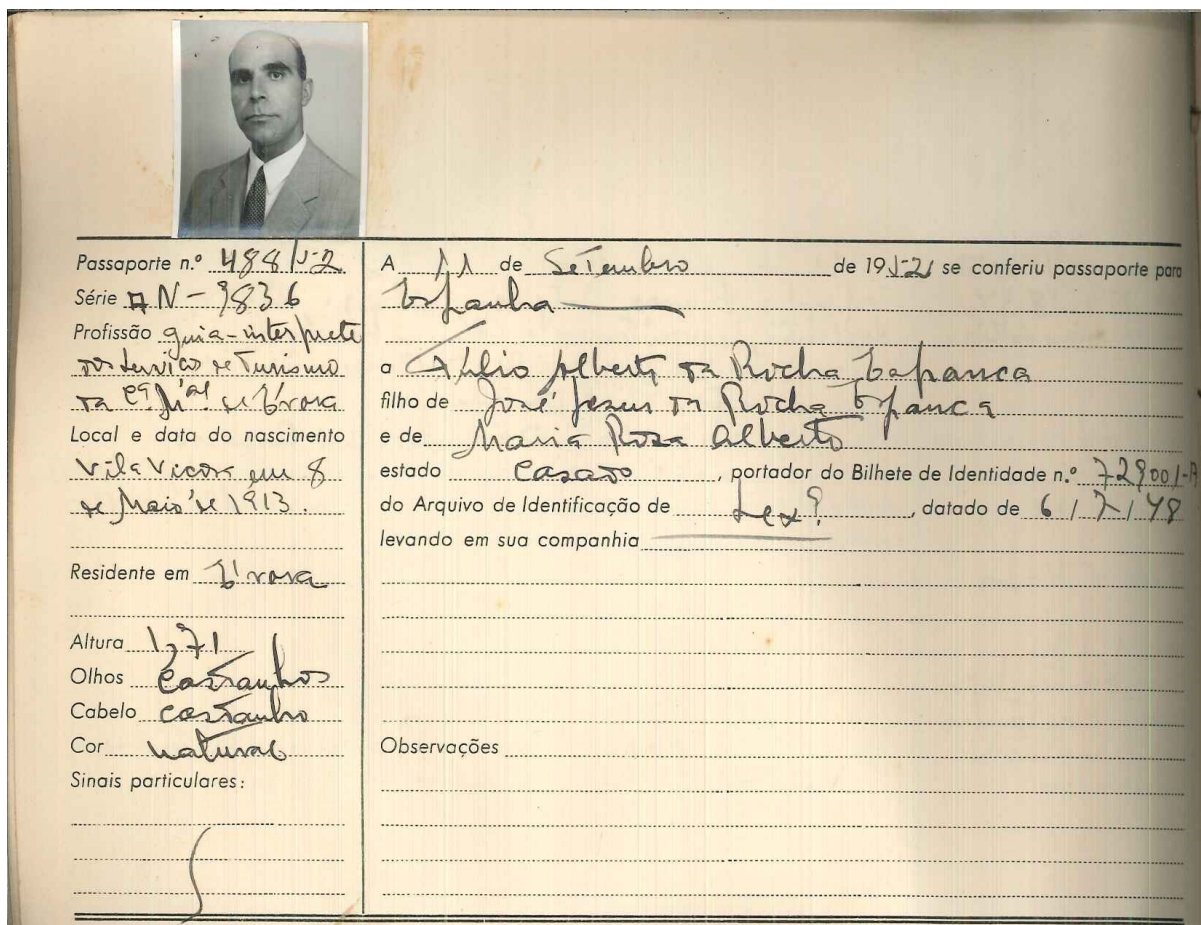 Passaporte n.º 488/52
Série N-9836
Profissão guia-interprete
dos serviços de Turismo
da Cª. Mal. de Évora
Local e data do nascimento
Vila Viçosa em 8
de Maio de 1913.
Residente em Évora
Altura 1,71
Olhos Castanhos
Cabelo castanho
Cor natural
Sinais particulares:
A 11 de Setembro de 1952 se conferiu passaporte para
Espanha
a Túlio Alberto da Rocha Espanca
filho de José Jesus da Rocha Espanca
e de Maria Rosa Alberto
estado casado, portador do Bilhete de Identidade n.º 729001-A
do Arquivo de Identificação de Lxª, datado de 6/7/48
levando em sua companhia
Observações